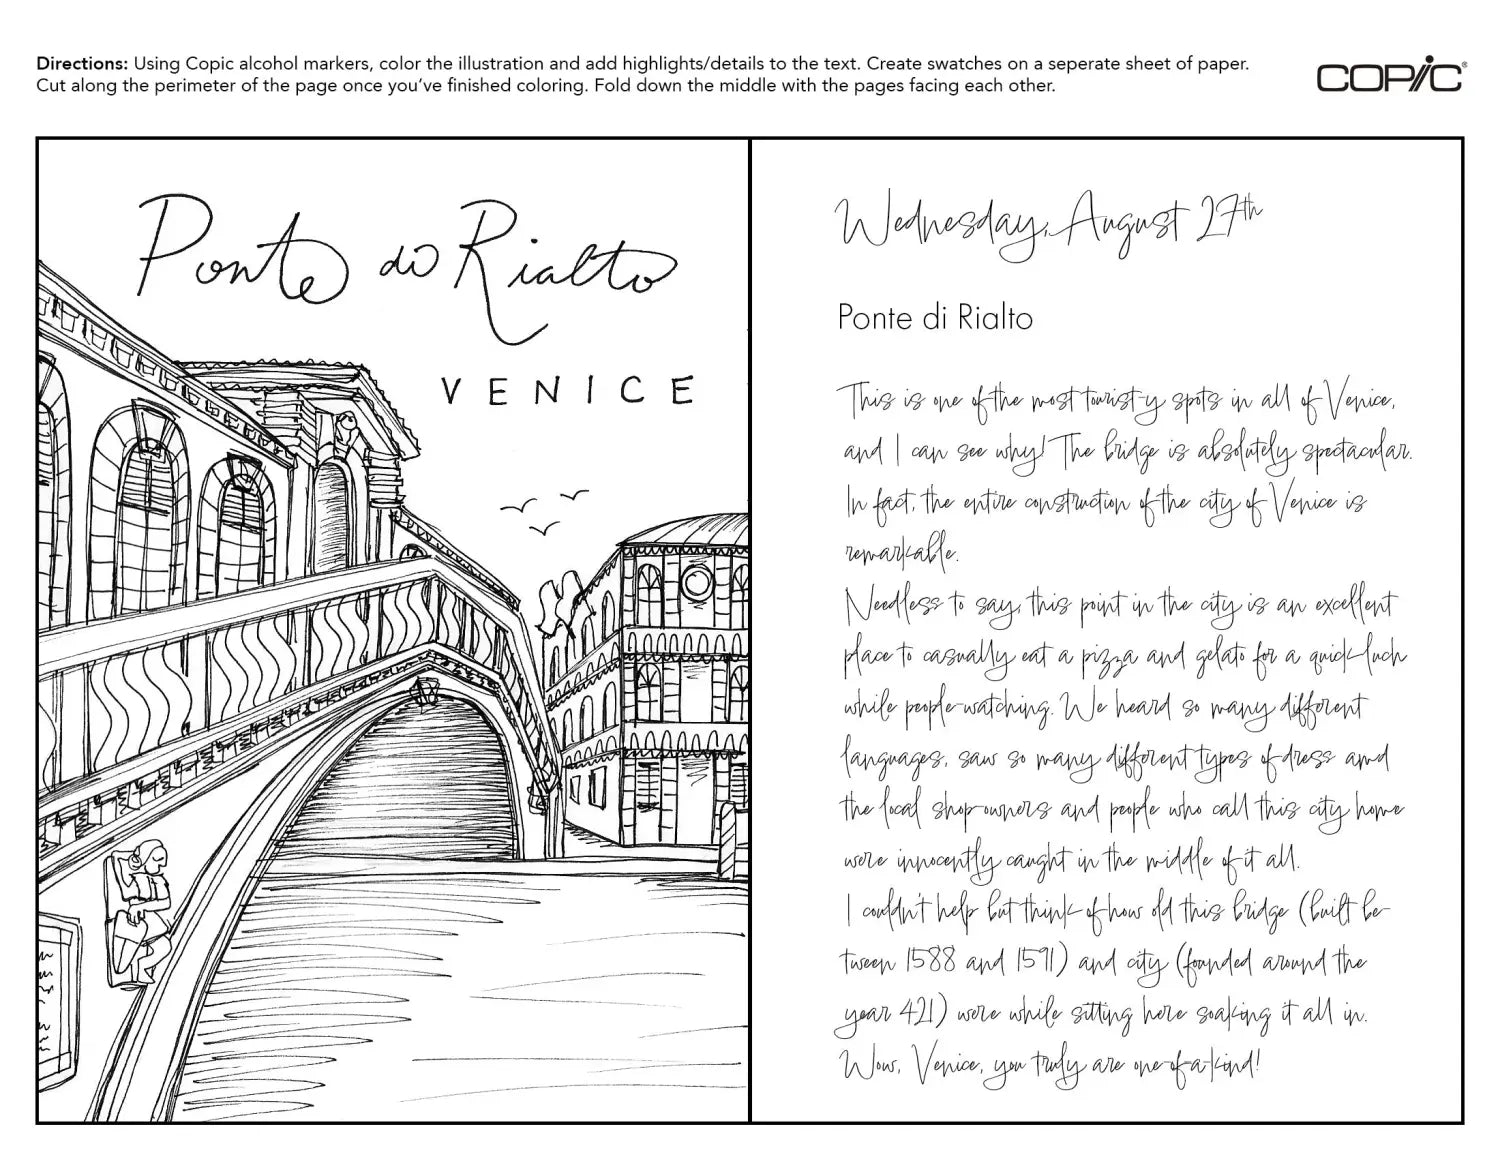 Directions: Using Copic alcohol markers, color the illustration and add highlights/details to the text. Create swatches on a seperate sheet of paper.
Cut along the perimeter of the page once you've finished coloring. Fold down the middle with the pages facing each other.
COPIC®
Ponte di Rialto
VENICE
Wednesday, August 27th
Ponte di Rialto
This is one of the most tourist-y spots in all of Venice,
and I can see why! The bridge is absolutely spectacular.
In fact, the entire construction of the city of Venice is
remarkable.
Needless to say, this point in the city is an excellent
place to casually eat a pizza and gelato for a quick luch
while people-watching. We heard so many different
languages, saw so many different types of dress amd
the local shop-owners and people who call this city home
were innocently caught in the middle of it all.
I couldn't help but think of how old this bridge (built be-
tween 1588 and 1591) and city (founded around the
year 421) were while sitting here soaking it all in.
Wow, Venice, you truly are one-of-a-kind!